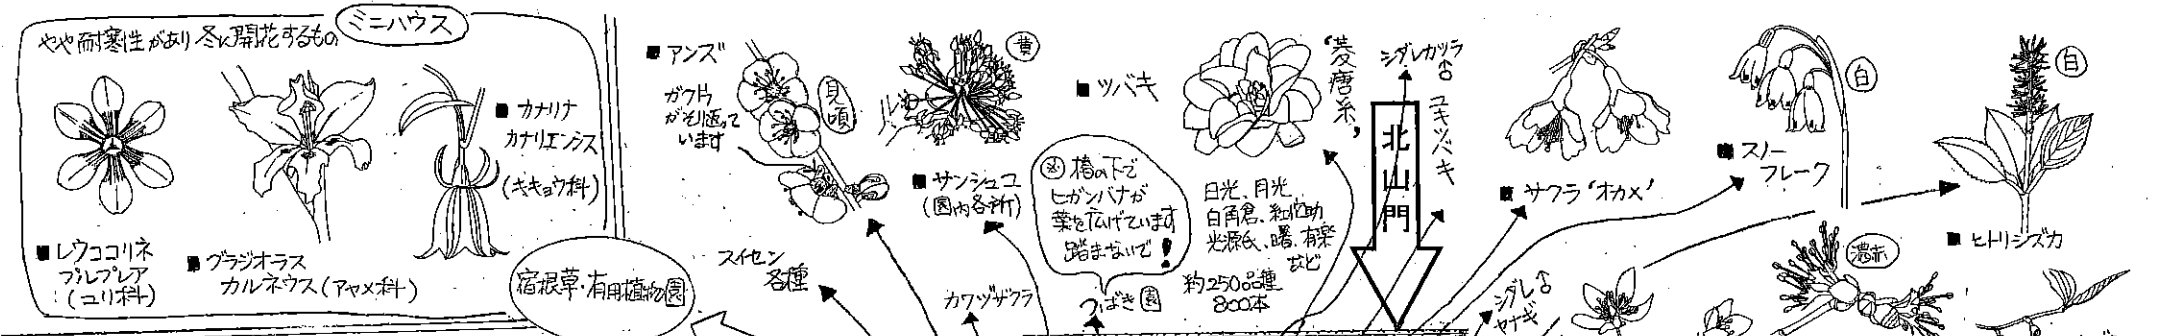 ミニハウス
やや耐寒性があり冬に開花するもの
■レウココリネ
プルプレア
(ユリ科)
■グラジオラス
カルネウス(アヤメ科)
■カナリナ
カナリエンシス
(キキョウ科)
宿根草・有用植物園
■アンズ
ガクが
がそり返って
います
見頃
スイセン
各種
黄
■サンシュユ
(園内各所)
カワヅザクラ
■ツバキ
'菱唐糸'
※椿の下で
ヒガンバナが
葉を広げています
踏まないで!
つばき園
日光、月光、
白角倉、紅侘助
光源氏、曙、有楽
など
約250品種
800本
シダレカツラ
北山門
ユキツバキ
■サクラ'オカメ'
白
■スノー
フレーク
白
■ヒトリシズカ
シダレ
ヤナギ
濃赤